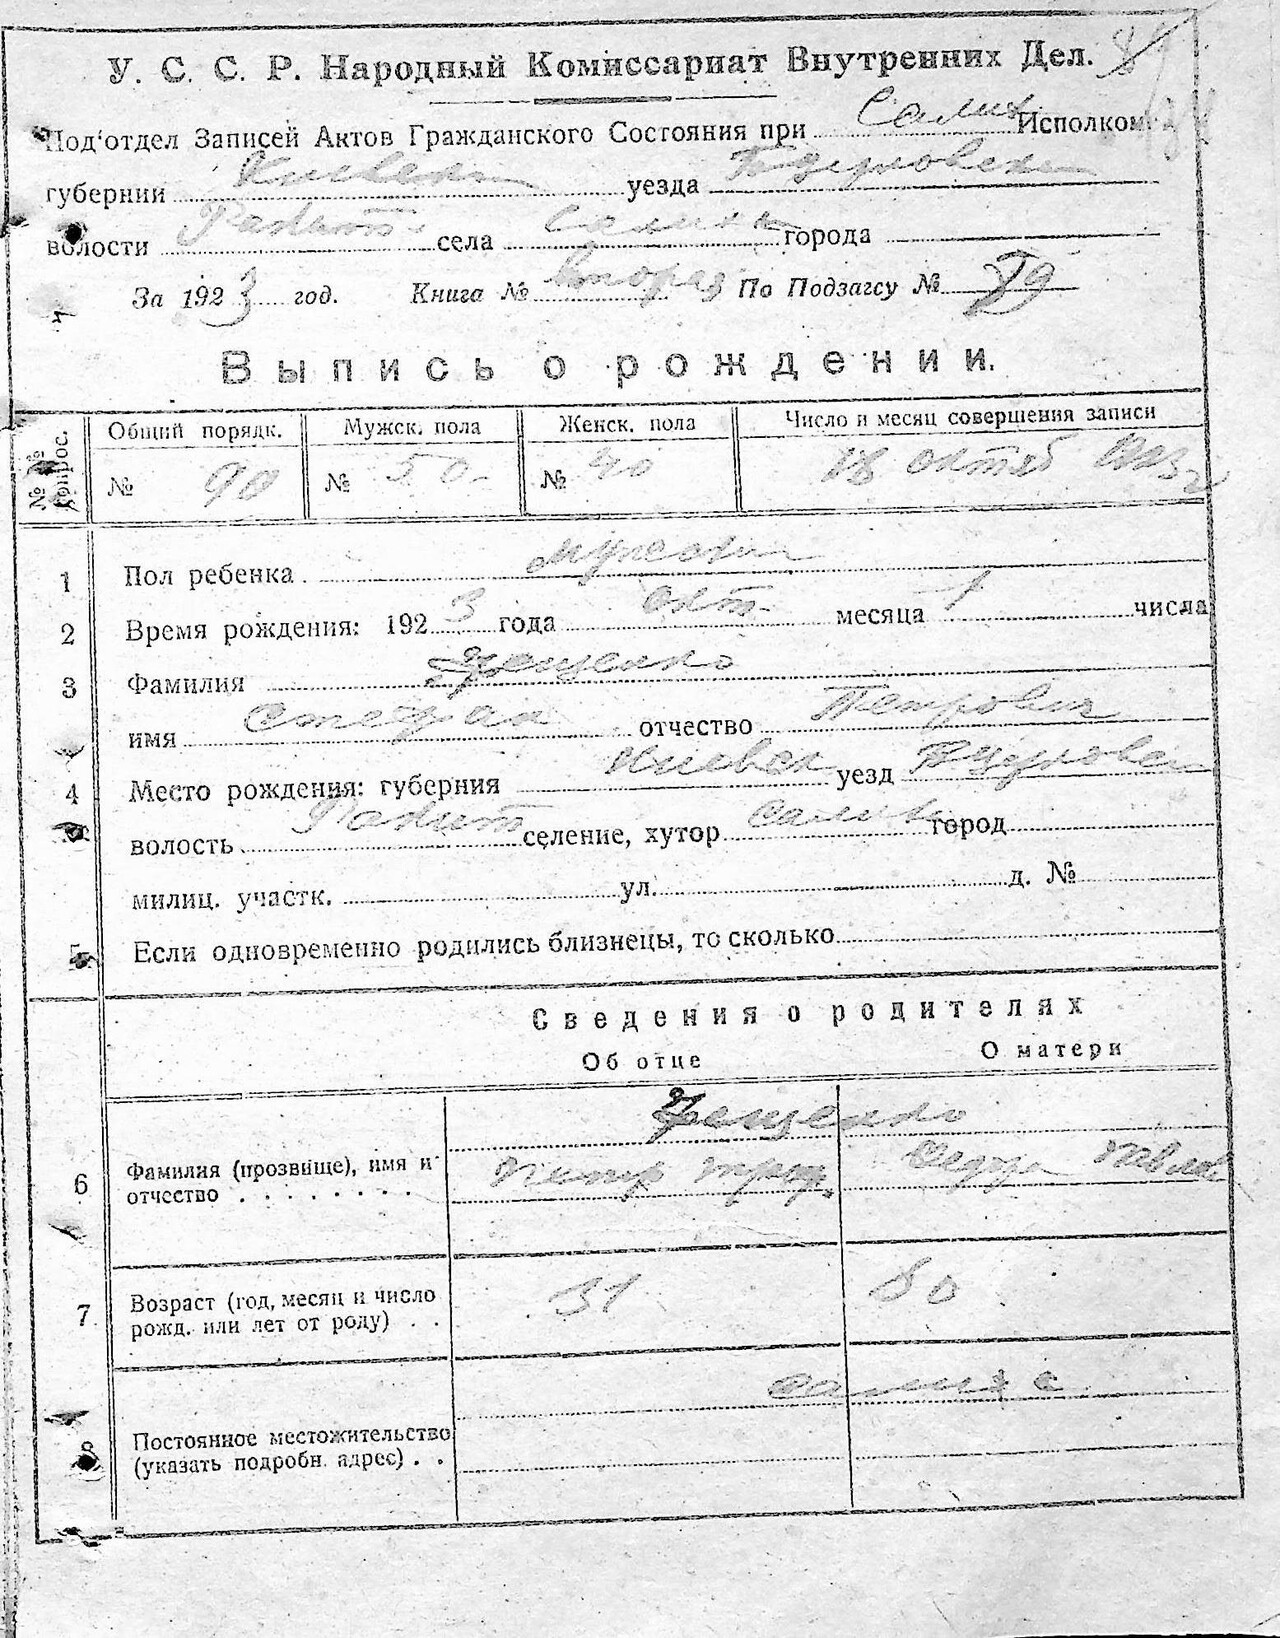 У. С. С. Р. Народный Комиссариат Внутренних Дел.
Под'отдел Записей Актов Гражданского Состояния при Салих Исполком
губернии Киевск уезда Бцерковск
волости Ракит- села Салиха города
За 1923 год. Книга № вторая По Подзагсу №
Выпись о рождении.
№ № вопрос. Общий порядк. Мужск. пола Женск. пола Число и месяц совершения записи
№ 90 № 50- № 40 18 октяб 1923 г
1 Пол ребенка мужской
2 Время рождения: 1923 года окт- месяца 1 числа
3 Фамилия
имя Стефан отчество Петрович
4 Место рождения: губерния Киевск уезд Бцерковск
волость Ракит селение, хутор Салиха город
милиц. участк. ул. д. №
5 Если одновременно родились близнецы, то сколько
Сведения о родителях
Об отце О матери
6 Фамилия (прозвище), имя и отчество
Петр Федора Павлов
7 Возраст (год, месяц и число рожд. или лет от роду) 31
8 Постоянное местожительство (указать подробн. адрес)
Салиха